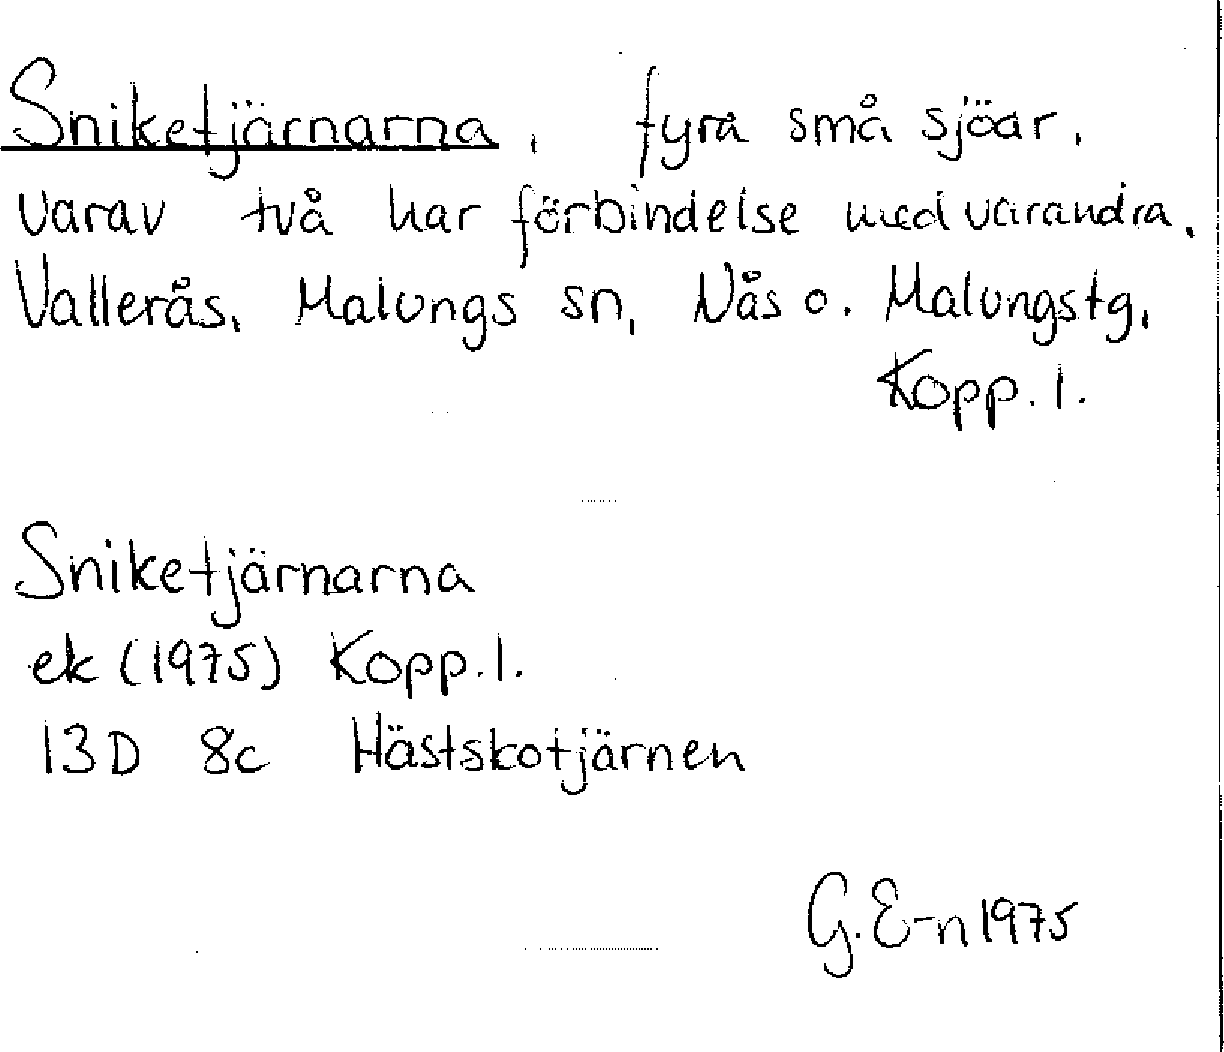 Sniketjärnarna, fyra små sjöar,
varav två har förbindelse med varandra,
Vallerås, Malungs sn, Nås o. Malungstg,
Kopp. l.
Sniketjärnarna
ek (1975) Kopp. l.
13D 8c Hästskotjärnen
G. E-n 1975